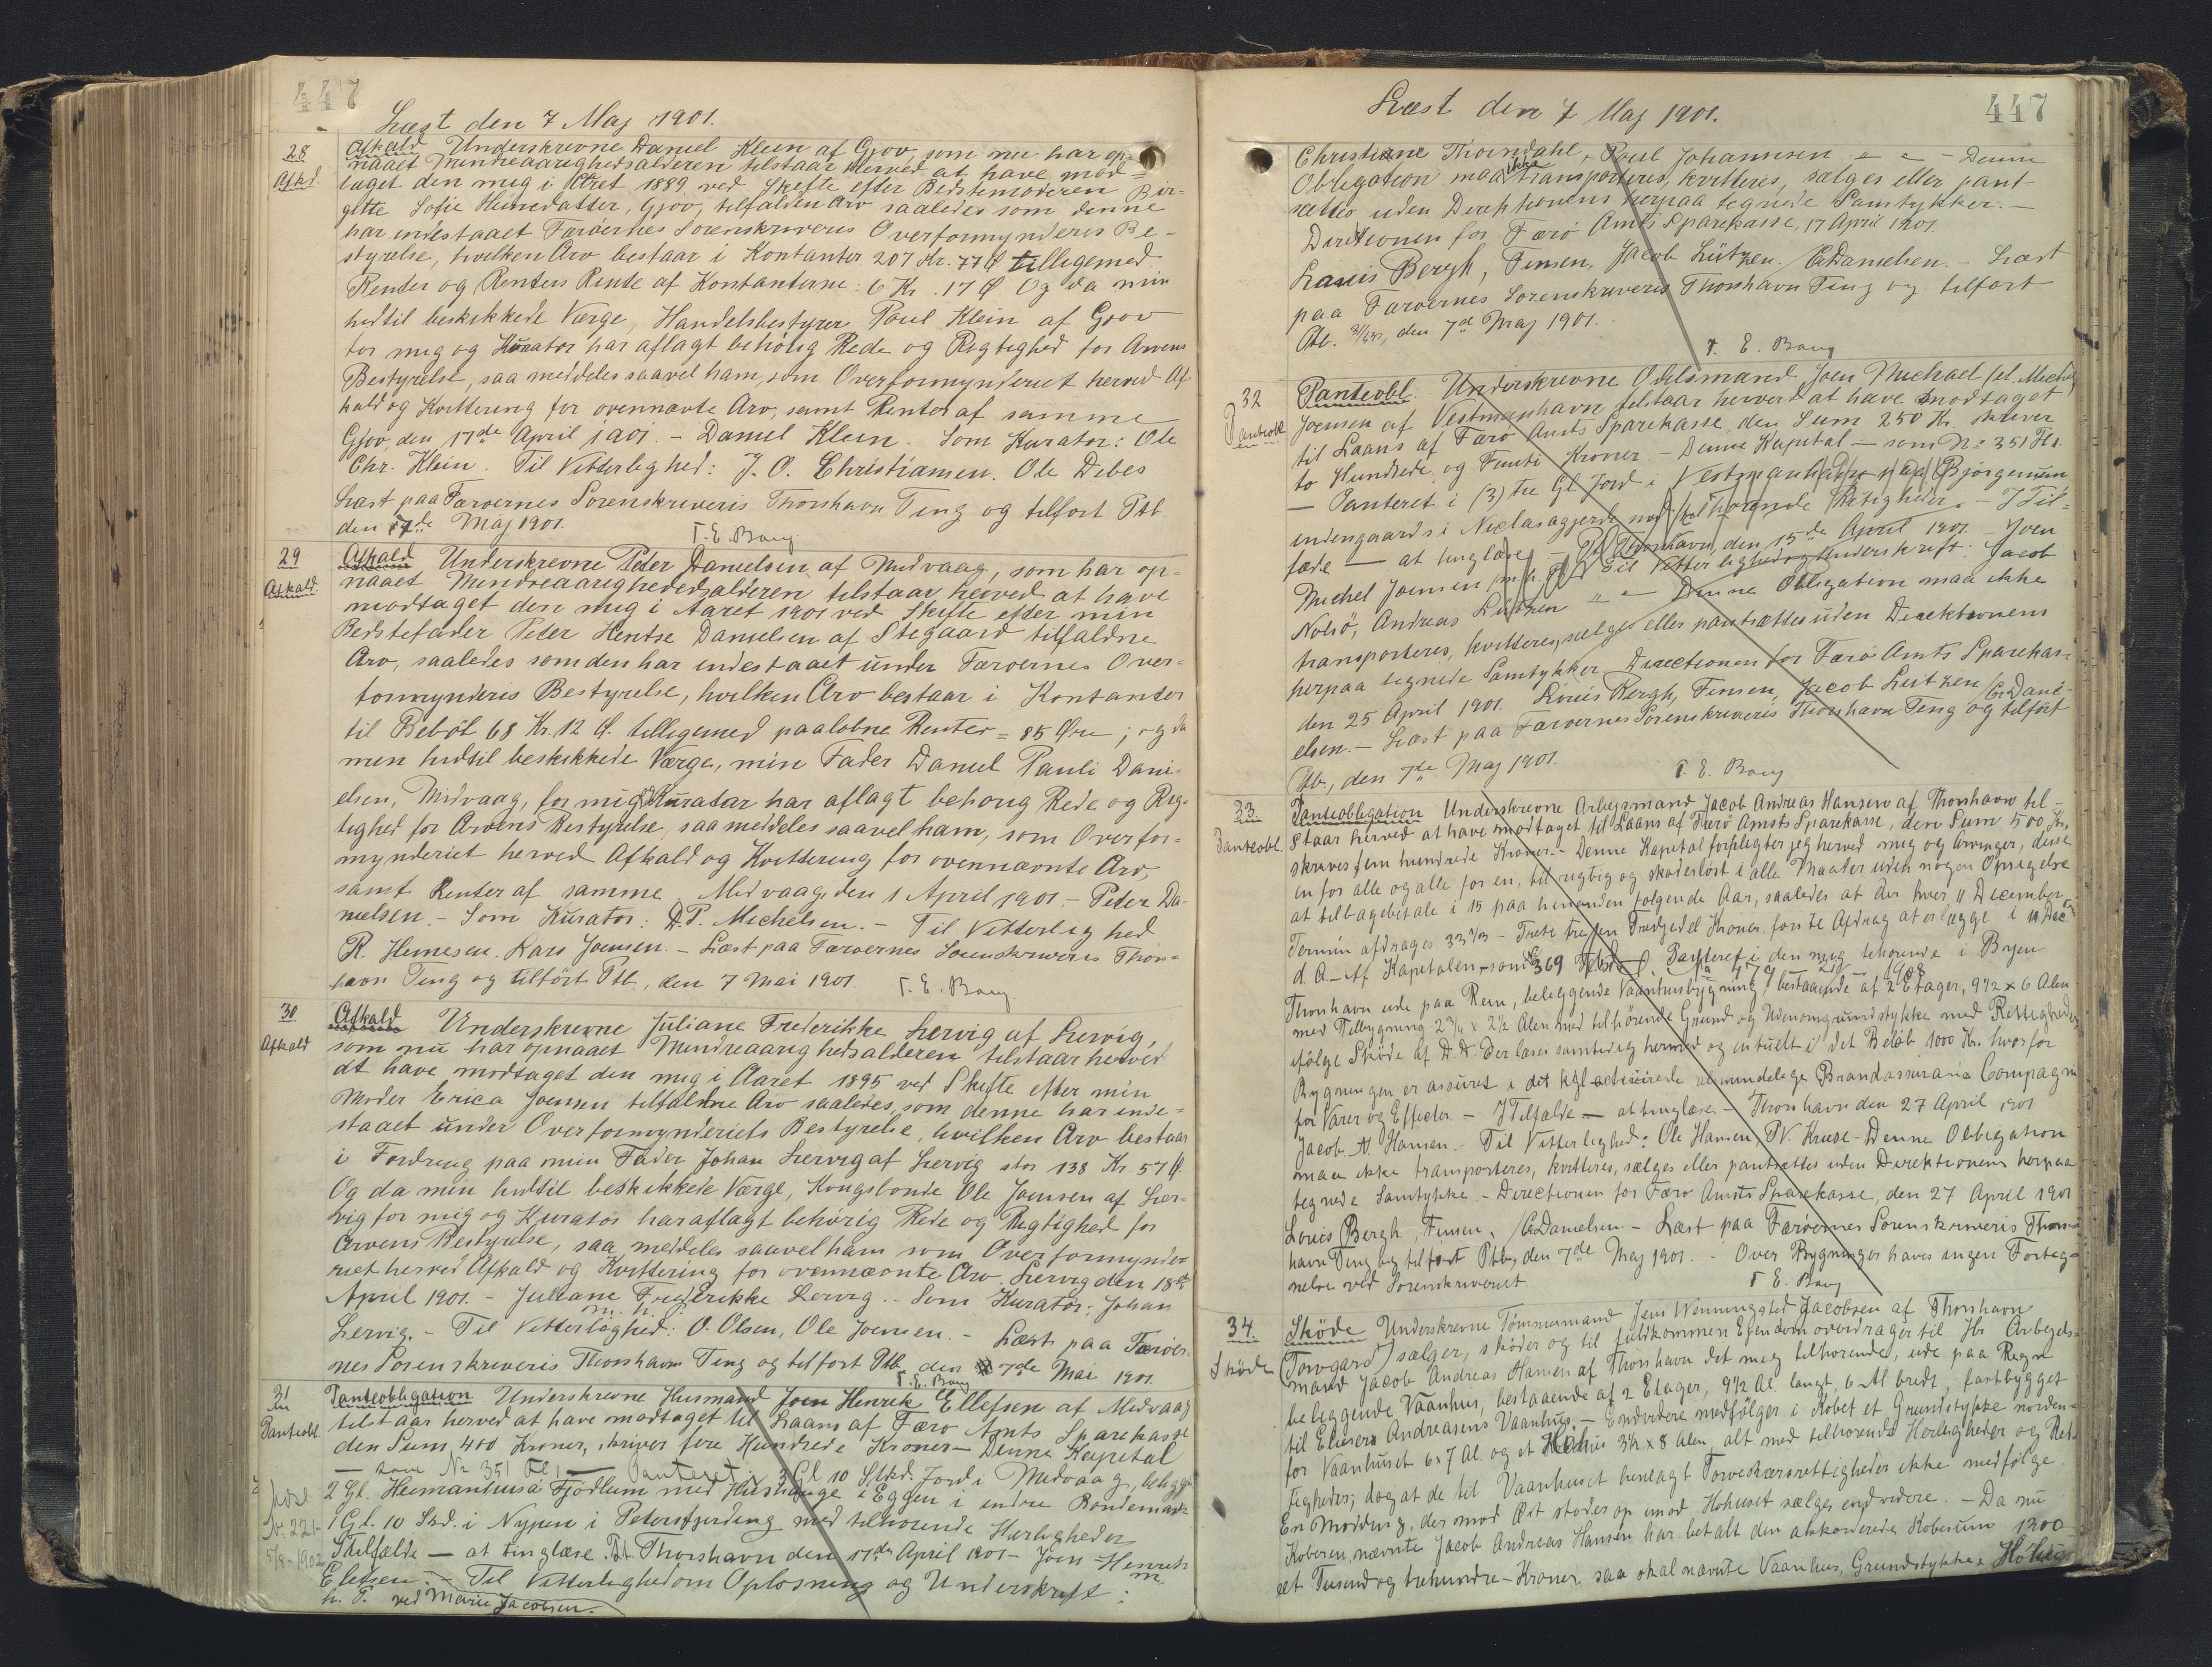 447
Læst den 7 Maj 1901.
28 Afkald Underskrevne Daniel Klein af Gjov, som nu har op-
Afkd. naaet Mindreaarighedsalderen tilstaar herved at have mod-
taget den mig i Aaret 1889 ved Skifte efter Bedstemoderen Bir-
gitte Sofie Heinedatter, Gjov, tilfalden Arv saaledes som denne
har indestaaet Færøernes Sorenskriveris Overformynderis Be-
styrelse, hvilken Arv bestaar i Kontanter 207 Kr. 77 Ø tilligemed
Renter og Renters Rente af Kontanterne: 6 Kr. 17 Ø Og da min
hidtil beskikkede Værge, Handelsbestyrer Poul Klein af Gjov
for mig og Kurator har aflagt behörig Rede og Rigtighed for Arvens
Bestyrelse, saa meddeles saavel ham, som Overformynderiet herved Af-
kald og Kvittering for ovennævnte Arv, samt Renter af samme
Gjov, den 17de April 1901. - Daniel Klein. Som Kurator: Ole
Chr. Klein. Til Vitterlighed: J. O. Christiansen. Ole Debes
Læst paa Færøernes Sorenskriveris Thorshavn Ting og tilført Ptb.
den 7de Maj 1901.
T. E. Bang
29 Afkald Underskrevne Peder Danielsen af Midvaag, som har op-
Afkald. naaet Mindreaarighedsalderen tilstaar herved at have
modtaget den mig i Aaret 1901 ved Skifte efter min
Bedstefader Peder Hentse Danielsen af Stegaard tilfaldne
Arv, saaledes som den har indestaaet under Færøernes Over-
formynderis Bestyrelse, hvilken Arv bestaar i Kontanter
til Beböb 68 Kr. 12 Ø. tilligemed paalöbne Renter = 85 Øre; og da
min hidtil beskikkede Værge, min Fader Daniel Pauli Dani-
elsen, Midvaag, for mig & Kurator har aflagt behörig Rede og Rig-
tighed for Arvens Bestyrelse, saa meddeles saavel ham, som Overfor-
mynderiet herved Afkald og Kvittering for ovennævnte Arv,
samt Renter af samme. Midvaag, den 1 April 1901. - Peder Da-
nielsen. - Som Kurator: D. P. Michelsen. - Til Vitterlighed
R. Heinesen. Lars Joensen. - Læst paa Færøernes Sorenskriveris Thors-
havn Ting og tilfört Ptb., den 7 Mai 1901.
T. E. Bang.
30 Afkald Underskrevne Juliane Frederikke Lervig af Lervig,
Afkald som nu har opnaaet Mindreaarighedsalderen tilstaar herved
at have modtaget den mig i Aaret 1895 ved Skifte efter min
Moder Erica Joensen tilfaldne Arv saaledes, som denne har inde-
staaet under Overformynderiets Bestyrelse, hvilken Arv bestaar
i Fordring paa min Fader Johan Lervig af Lervig stor 138 Kr 57 Ø.
Og da min hidtil beskikkede Værge, Kongsbonde Ole Joensen af Ler-
vig for mig og Kurator har aflagt behörig Rede og Rigtighed for
Arvens Bestyrelse, saa meddeles saavel ham som Overformynde-
riet herved Afkald og Kvittering for ovennævnte Arv. Lervig den 18de
April 1901. - Juliane Frederikke Lervig. - Som Kurator: Johan
m. h. P.
Lervig. - Til Vitterlighed: O. Olsen, Ole Joensen. - Læst paa Færøer-
nes Sorenskriveris Thorshavn Ting og tilfört Ptb. den 7de Mai 1901.
T. E. Bang
31 Panteobligation Underskrevne Husmand Joen Henrik Ellefsen af Midvaag
Panteobl. tilstaar herved at have modtaget til Laans af Færö Amts Sparekasse
den Sum, 400 Kroner, skriver fire Hundrede Kroner - Denne Kapital
- som No 351 Fl. - Panteret i 3 Gl 10 Skd. Jord i Midvaag, beligge
2 Gl. Heimanhusa Fjödlum med Hushauge i Eggen i indre Bondemark
1 Gl. 10 Skd. i Nypen i Petersfjerding med tilhörende Herligheder
No. 221
5/8-1902 I Tilfælde - at tinglæse. Pt. Thorshavn den 17de April 1901 - Joen Henrik
Ellefsen. - Til Vitterlighed om Oplæsning og Underskrift:
m.
h. P. ved Marie Jacobsen.
447
Læst den 7 Maj 1901.
Christiane Thorndahl, Poul Johannesen " " - Denne
Obligation maa ikke transporteres, kvitteres, sælges eller pant-
sættes uden Direktionens herpaa tegnede Samtykker. -
Direktionen for Færö Amts Sparekasse, 17 April 1901.
Louis Bergh, Finsen, Jacob Lützen. / C. Danielsen. - Læst
paa Færøernes Sorenskriveris Thorshavn Ting og tilfört
Ptb., den 7de Maj 1901.
T. E. Bang
32 Panteobl. Underskrevne Odelsmand Joen Michael (el. Michel)
Panteobl. Joensen af Vestmanhavn tilstaar herved at have modtaget
til Laans af Færö Amts Sparekasse, den Sum 250 Kr. skriver
to Hundrede og Femti Kroner. - Denne Kapital - som No 351 Fl.
- Panteret i (3) tre Gl. Jord i Vestmanhavn paa Bjørgenum
indengaards i Niclasagjerde med tilhørende Rettigheder. - I Til-
fælde - at tinglæse. - Pt. Thorshavn, den 15de April 1901 - Joen
Michel Joensen m. h. P. Til Vitterlighed og Underskrift: Jacob
Nolsö, Andreas Lützen " " Denne Obligation maa ikke
transporteres, kvitteres, sælges eller pantsættes uden Direktionens
herpaa tegnede Samtykker. Directionen for Færö Amts Sparekasse
den 25 April 1901. Louis Bergh, Finsen, Jacob Lützen / C. Dani-
elsen. - Læst paa Færøernes Sorenskriveris Thorshavn Ting og tilfört
Ptb., den 7de Maj 1901.
T. E. Bang
33. Panteobligation Underskrevne Arbejsmand Jacob Andreas Hansen af Thorshavn til-
Panteobl. staar herved at have modtaget til Laans af Færö Amts Sparekasse, den Sum 500 Kr.
skriver fem hundrede Kroner. - Denne Kapital forpligter jeg herved mig og Arvinger, disse
en for alle og alle for en, til rigtig og skadeslöst i alle Maader uden nogen Opsigelse
at tilbagebetale i 15 paa hinanden fölgende Aar, saaledes at der hver 11 December
Termin afdrages 33 1/3 - Treti tre en Tredjedel Kroner, förste Afdrag at erlægge i 11 Dec.
d. A. - Af Kapitalen - som 369 Panteret i den mig tilhørende i Byen
Thorshavn ude paa Rein, beliggende Vaanhusbygning, bestaaende af 2 Etager, 9 1/2 x 6 Alen
med Tilbygning 2 3/4 x 2 1/2 Alen med tilhörende Grund og Udenomgrundstykke med Rettigheder
ifölge Sköde af D. D. der læses samtidig hermed og intuelt i det Belöb 1000 Kr. hvorfor
Bygningen er assuret i det kgl. octroierede almindelige Brandassurance Compagni
for Varer og Effecter. - I Tilfælde - at tinglæse. - Thorshavn den 27 April 1901
Jacob A. Hansen. - Til Vitterlighed: Ole Hansen, P. V. Kruse - Denne Obligation
maa ikke transporteres, kvitteres, sælges eller pantsættes uden Direktionens herpaa
tegnede Samtykke - Directionen for Færö Amts Sparekasse, den 27 April 1901
Louis Bergh, Finsen, / C. Danielsen - Læst paa Færøernes Sorenskriveris Thors-
havn Ting og tilfört Ptb., den 7de Maj 1901. - Over Bygninger haves ingen Forteg-
nelse ved Sorenskriveriet.
T. E. Bang
34. Sköde Underskrevne Tömmermand Jens Wenningsted Jacobsen af Thorshavn
Sköde (Torvgard) sælger, sköder og til fuldkommen Ejendom overdrager til Hr. Arbejds-
mand Jacob Andreas Hansen af Thorshavn det mig tilhørende, ude paa Reyn
beliggende Vaanhus, bestaaende af 2 Etager, 9 1/2 Al. langt, 6 Al bredt, fastbygget
til Eliesers Andreasens Vaanhus. - Endvidere medfölger i Köbet et Grundstykke norden-
for Vaanhuset 6 x 7 Al. og et Höhus 3 1/2 x 8 Alen, alt med tilhørende Herligheder og Ret-
tigheder; dog at de til Vaanhuset henlagt Torveskærsrettigheder ikke medfölge.
En Modding, der mod Öst stöder op imod Höhuset sælges endvidere. - Da nu
Köberen, nævnte Jacob Andreas Hansen har betalt den akkorderede Köbesum 1300
et Tusend og trehundre - Kroner, saa skal nævnte Vaanhus, Grundstykke & Höhus